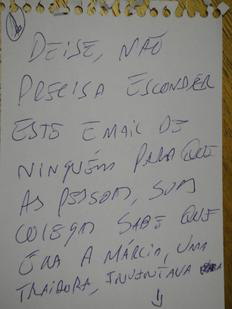 DEISE, NÃO
PRECISA ESCONDER
ESTE EMAIL DE
NINGUÉM PARA QUE
AS PESSOAS, SUAS
COLEGAS SABE QUE
ERA A MÁRCIA, UMA
TRAIDORA, INVENTAVA